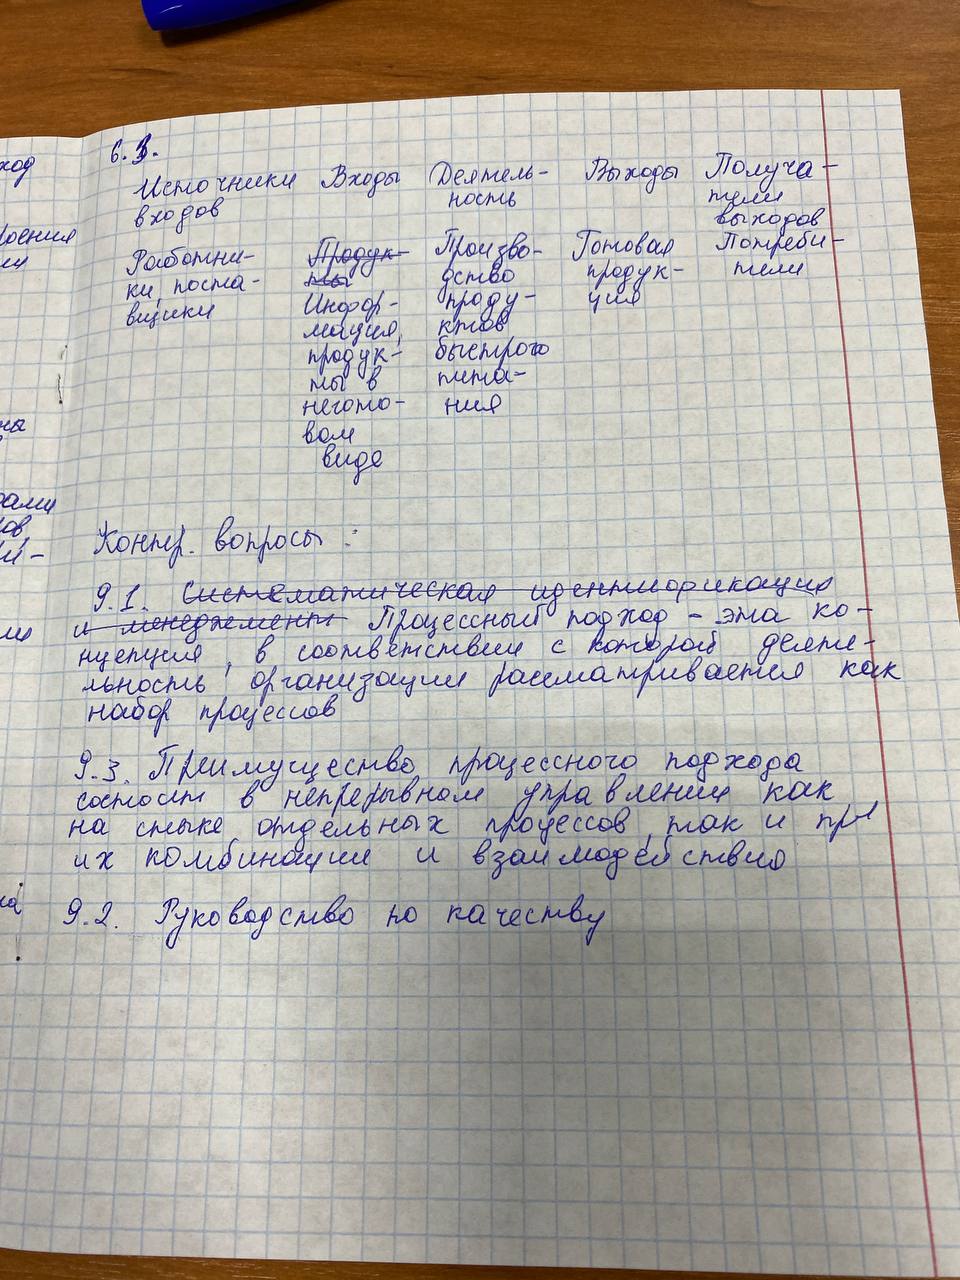 6.3.
Источники входов Входы Деятель-ность Выходы Получа-тели выходов
Работни-
ки, поста-
вщики
Продук-
ты
Инфор-
мация,
продук-
ты в
негото-
вом
виде
Произво-
дство
проду-
ктов
быстрого
пита-
ния
Готовая
продук-
ция
Потреби-
тели
Контр. вопросы:
9.1. Систематическая идентификация
и менеджмент Процессный подход - эта ко-
нцепция, в соответствии с которой деяте-
льность организации рассматривается как
набор процессов
9.3. Преимущество процессного подхода
состоит в непрерывном управлении как
на стыке отдельных процессов, так и при
их комбинации и взаимодействию
9.2. Руководство по качеству
ход
роения
ии
на
рами
ов